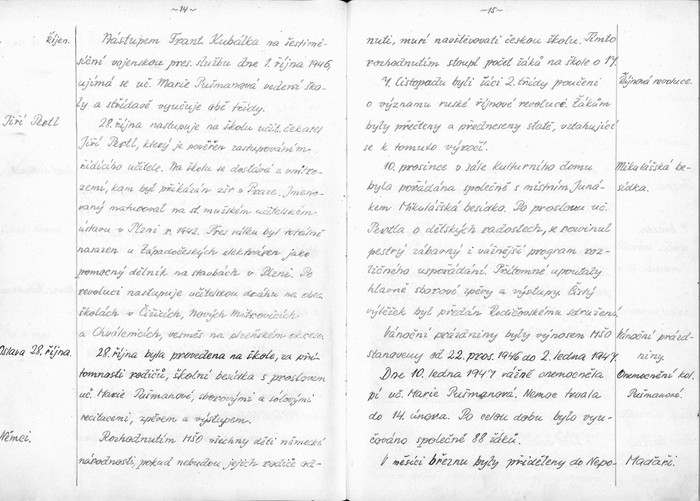 ~14~
Říjen.
Nástupem Frant. Kubálka na šestimě-
síční vojenskou pres. službu dne 1. října 1946,
ujímá se uč. Marie Pušmanová vedení ško-
ly a střídavě vyučuje obě třídy.
Jiří Pertl
28. října nastupuje na školu učit. čekatel
Jiří Pertl, který je pověřen zastupováním
řídícího učitele. Na školu se dostává z vnitro-
zemí, kam byl překázán zšr v Praze. Jmeno-
vaný maturoval na st. mužském učitelském
ústavu v Plzni r. 1942. Přes válku byl totálně
nasazen u Západočeských elektráren jako
pomocný dělník na stavbách v Plzni. Po
revoluci nastupuje učitelskou dráhu na obec.
školách v Čižicích, Nových Mitrovicích
a Chválenicích, vesměs na plzeňském okrese.
Oslava 28. října.
28. října byla provedena na škole, za pří-
tomnosti rodičů, školní besídka s proslovem
uč. Marie Pušmanové, sborovými a sólovými
recitacemi, zpěvem a výstupem.
Němci.
Rozhodnutím MŠO všechny děti německé
národnosti, pokud nebudou jejich rodiče od-
~15~
nuti, musí navštěvovati českou školu. Tímto
rozhodnutím stoupl počet žáků na škole o 17.
7. listopadu byli žáci 2. třídy poučeni
Říjnová revoluce.
o významu ruské říjnové revoluce. Žákům
byly přečteny a předneseny statě, vztahující
se k tomuto výročí.
10. prosince v sále kulturního domu
Mikulášská be-
byla pořádána společně s místním Juná-
sídka.
kem Mikulášská besídka. Po proslovu uč.
Pertla o dětských radostech, se rozvinul
pestrý zábavný i vážnější program roz-
tičného uspořádání. Přítomné upoutaly
hlavně sborové zpěvy a výstupy. Čistý
výtěžek byl předán Rodičovskému sdružení.
Vánoční prázdniny byly výnosem MŠO
Vánoční prázd-
stanoveny od 22. pros. 1946 do 2. ledna 1947.
niny.
Dne 10. ledna 1947 vážně onemocněla
Onemocnění kol.
pí uč. Marie Pušmanová. Nemoc trvala
Pušmanové.
do 14. února. Po celou dobu bylo vyu-
čováno společně 88 žáků.
V měsíci březnu byly přiděleny do Nepo-
Maďaři.